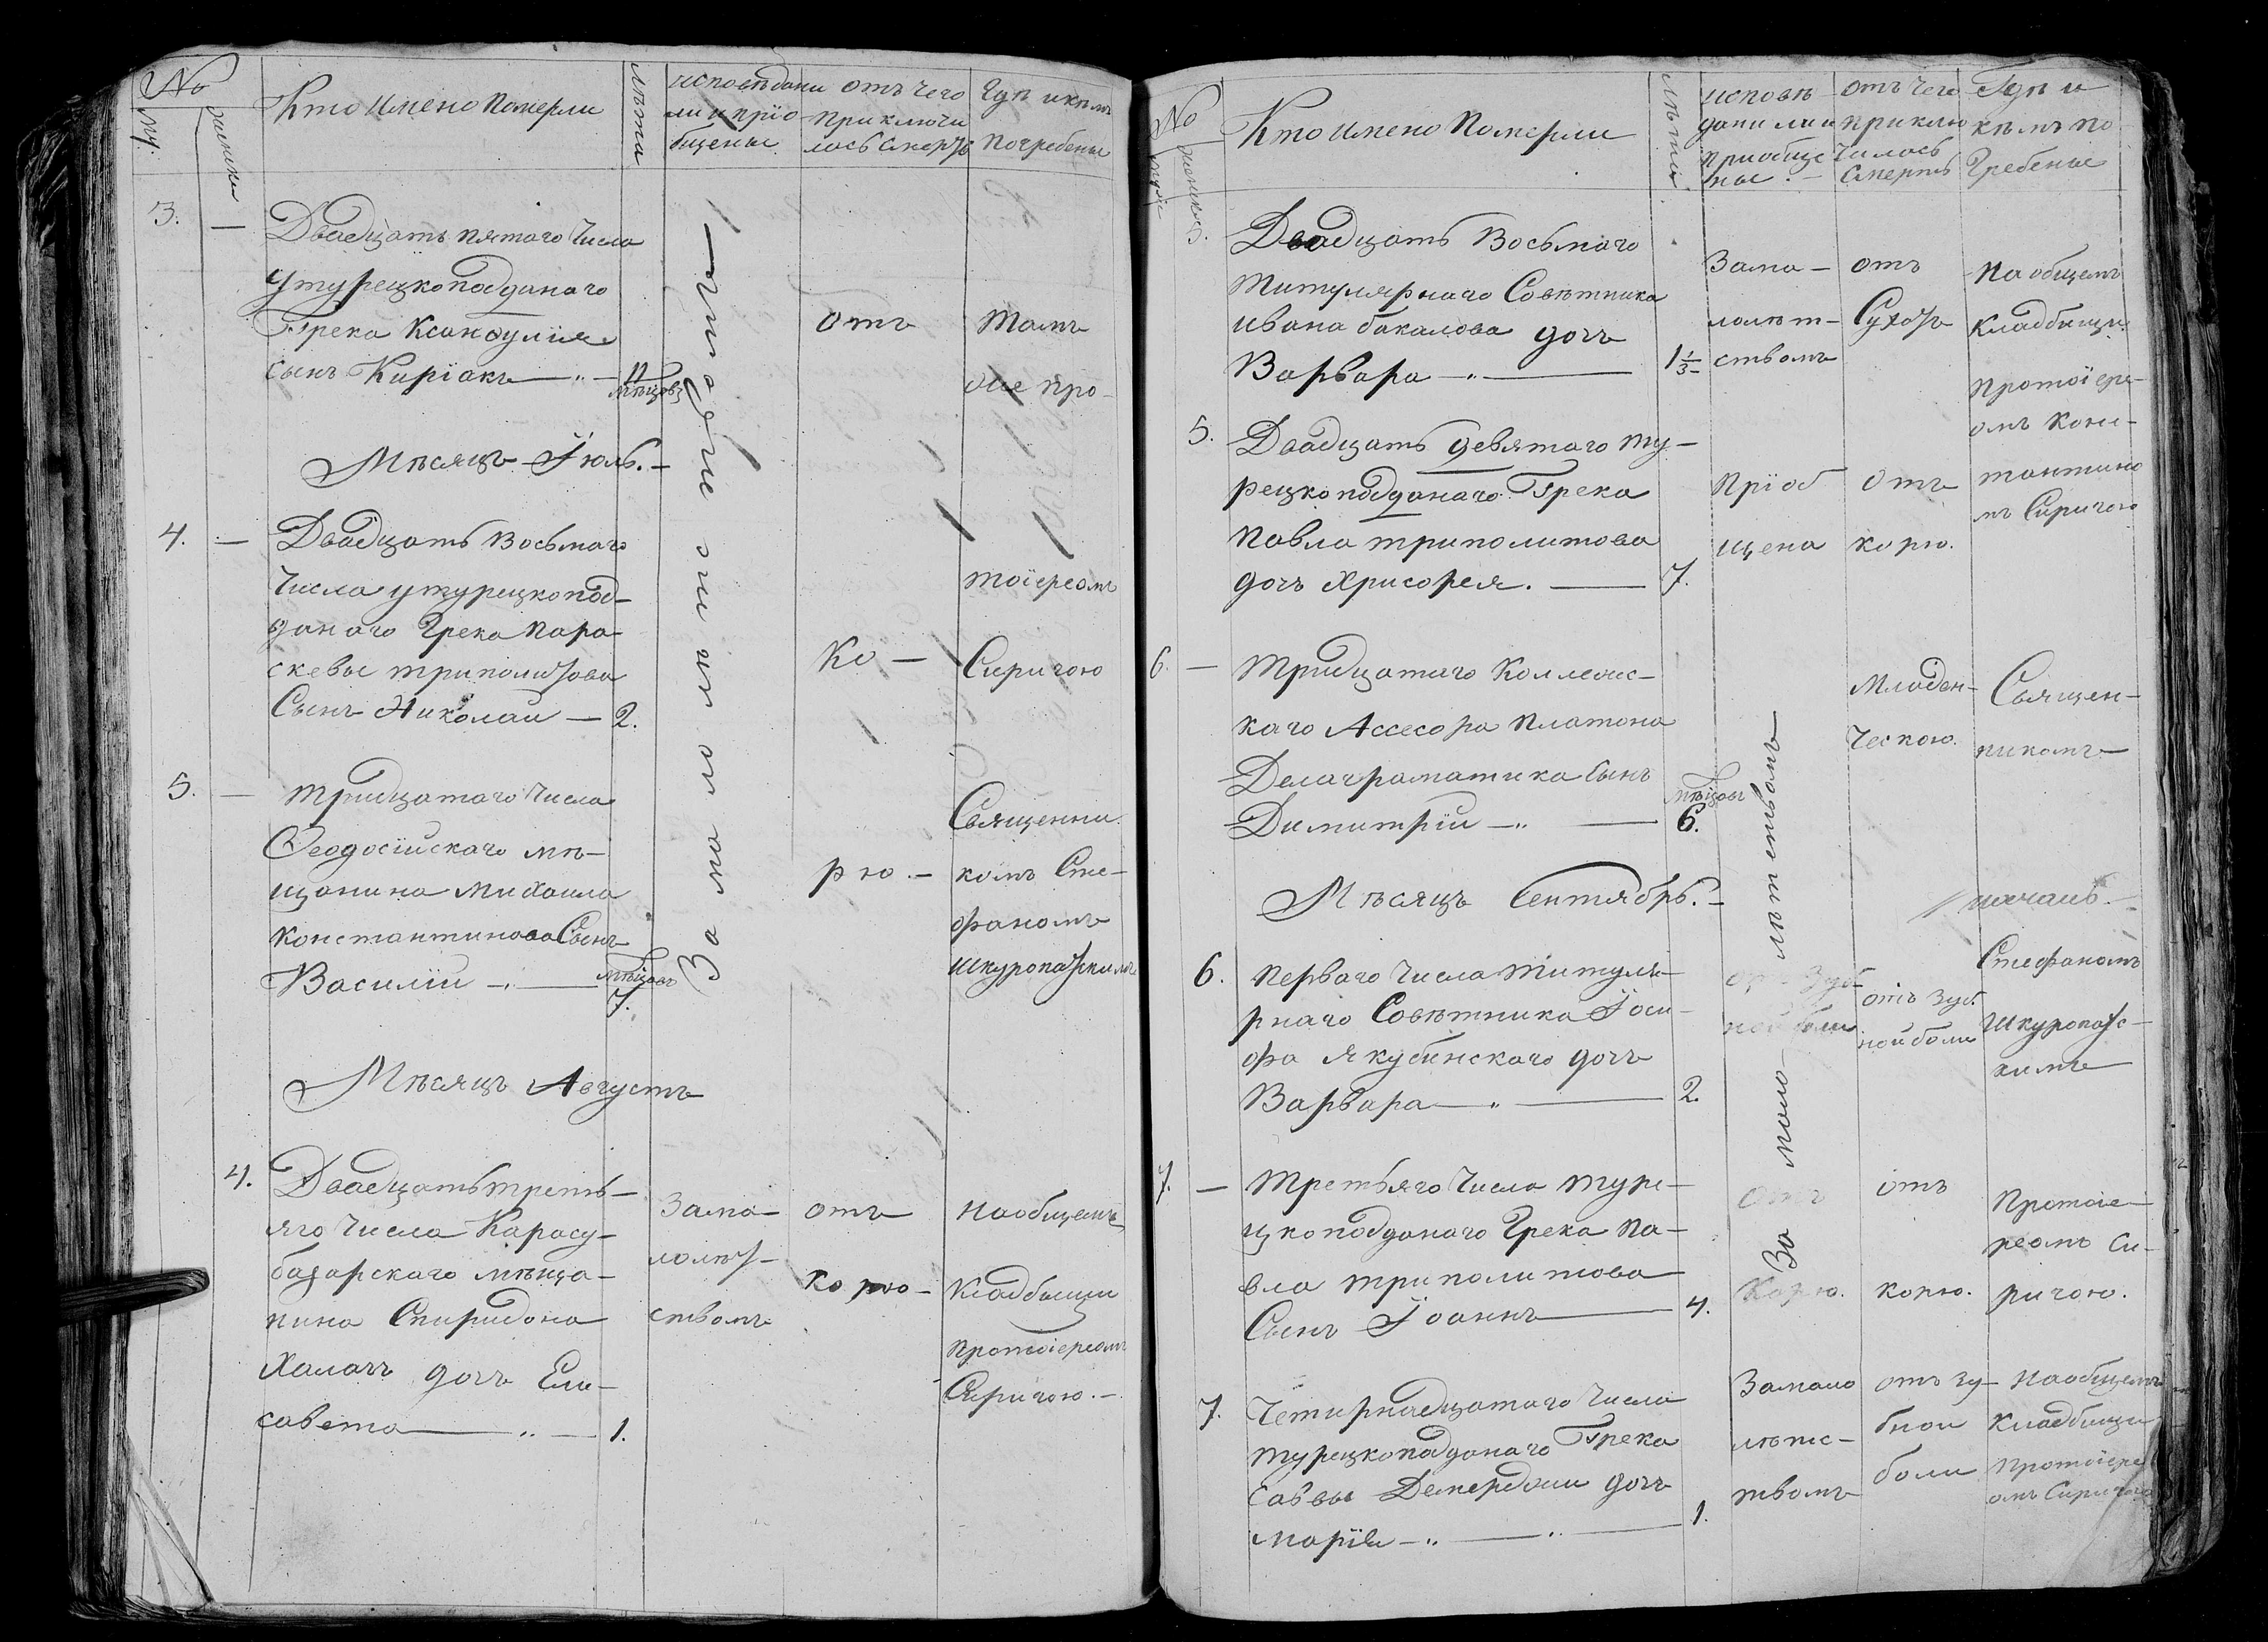 No
муж:
женски
Кто имено Померли
лѣта
исповѣдани
ли и прїо
бщеные
отъ чего
приключи
лось смерть
Гдѣ и кѣмъ
погребеные
3. —
Двадцать пятаго Числа
у турецкоподданаго
Грека Ксанфулїя
сынъ Кирїакъ — " — 11
мѣсцовъ
Мѣсяцъ Їюль. —
4. —
Двадцать Восьмаго
Числа у турецкопод—
данаго Грека Пара—
скевы триполитова
Сынъ Николаи — 2.
5. —
тридцатаго Числа
Ѳеодосїискаго мѣ—
щанина Михаила
Константинова Сынъ
Василїи — " — мѣсцовъ
7.
Мѣсяцъ Августъ
4.
Двадцать треть—
яго Числа Карасу—
базарскаго мѣща—
нина Спиридона
Халачъ дочъ Ели—
савета — " — 1.
За мо ло лѣт ст
За ма—
лолѣт—
ствомъ
отъ
ко —
рю. —
отъ
ко рю —
тамъ
оже про—
тоїереомъ
Сиричою
Священни
комъ Сте—
фаномъ
Шкуропатскимъ
на общемъ
Кладбищи
протоїереомъ
Сиричою. —
No
муж
женской
Кто имено Померли
лѣта
исповѣ—
дани ли и
приобще
ные. —
отъ чего
приклю
чилось
смерть
Гдѣ и
кѣмъ по
гребеные
5.
Двадцать Восьмаго
Титулярнаго Совѣтника
ивана бакалова дочъ
Варвара — " — 1 1/3
За ма—
лолѣт—
ствомъ
отъ
Сухотъ
на общемъ
Кладбищи
протоїере—
омъ Конс—
тантино
мъ Сиричою
5.
Двадцать девятаго ту—
рецкоподданаго Грека
Павла триполитова
дочъ Хрисорея. — 7.
Прїоб
щена
отъ
корю.
6. —
тридцатаго Коллежс—
каго Ассесора Платона
Делаграматика Сынъ
Димитрїи — " — мѣсцовъ
6.
Младен—
ческою.
Священ—
никомъ —
Мѣсяцъ Сентябрь. —
6.
перваго Числа титуля—
рнаго Совѣтника Їоси—
фа Якубинскаго дочъ
Варвара — " — 2.
За мало лѣтствомъ
отъ зуб
ной боли
Стефаномъ
Шкуропатс—
кимъ
7. —
третьяго Числа туре—
цкоподданаго Грека Па—
вла триполитова
Сынъ Їоаннъ — 4.
отъ
корю.
Протоїе—
реомъ Си—
ричою.
7.
Четирнадцатаго Числа
турецкоподданаго Грека
Саввы Демерджи дочъ
Марїя — " — " — 1.
За мало
лѣтс—
твомъ
отъ зу—
бной
боли
на общемъ
Кладбищи
протоїере
омъ Сиричою